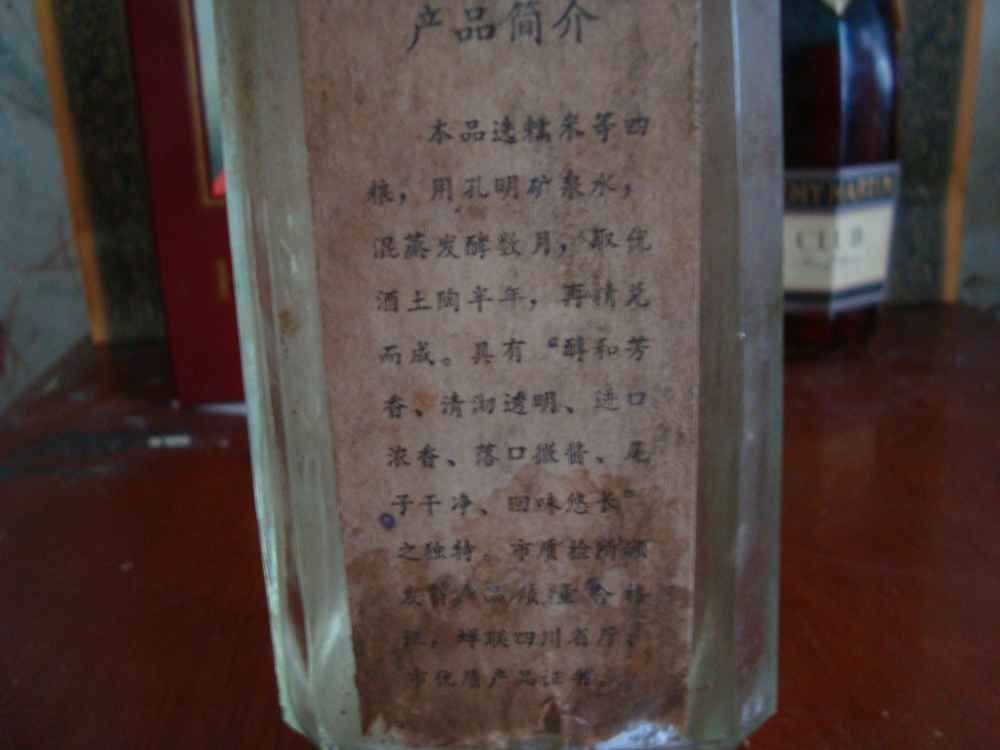 产品简介
本品选糯米等四
粮，用孔明矿泉水，
混蒸发酵数月，取优
酒土陶半年，再精兑
而成。具有“醇和芳
香、清沏透明、进口
浓香、落口微酱、尾
子干净、回味悠长”
之独特。市质检所颁
发了产品质量合格
证，蝉联四川省厅、
市优质产品证书。
NY MARTIN
CLUB